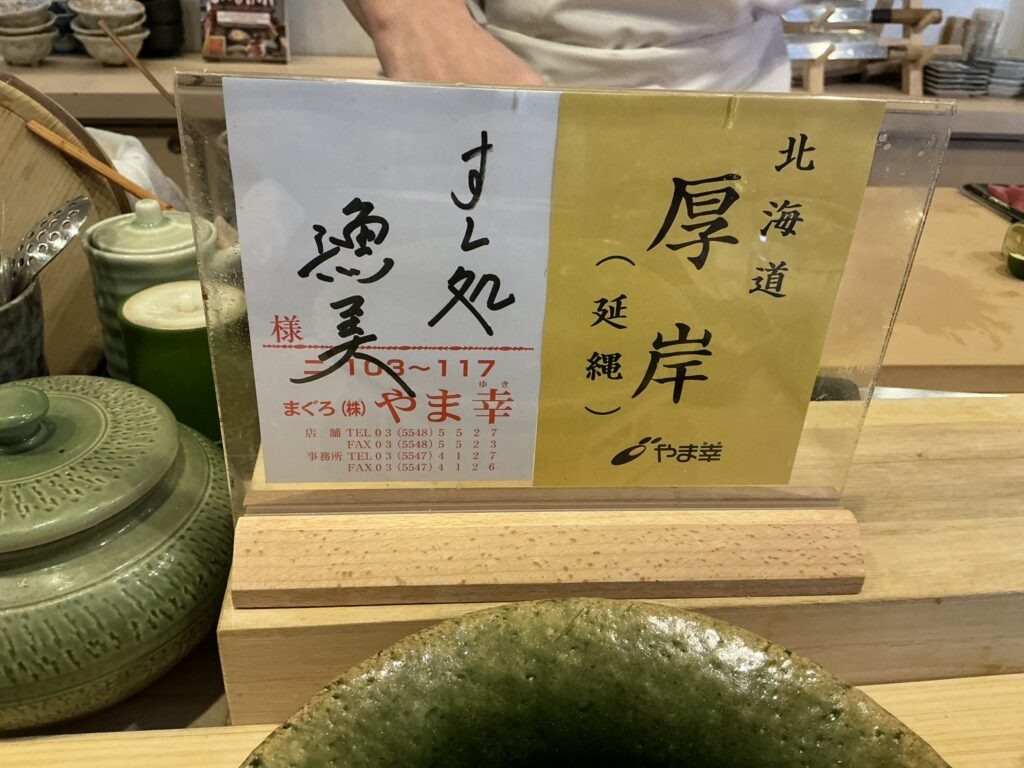 すし処
漁美
様
ニ 103〜117
ゆき
まぐろ(株) やま幸
店舗 TEL 03(5548)5527
FAX 03(5548)5523
事務所 TEL 03(5547)4127
FAX 03(5547)4126
北海道
厚岸
(延縄)
やま幸